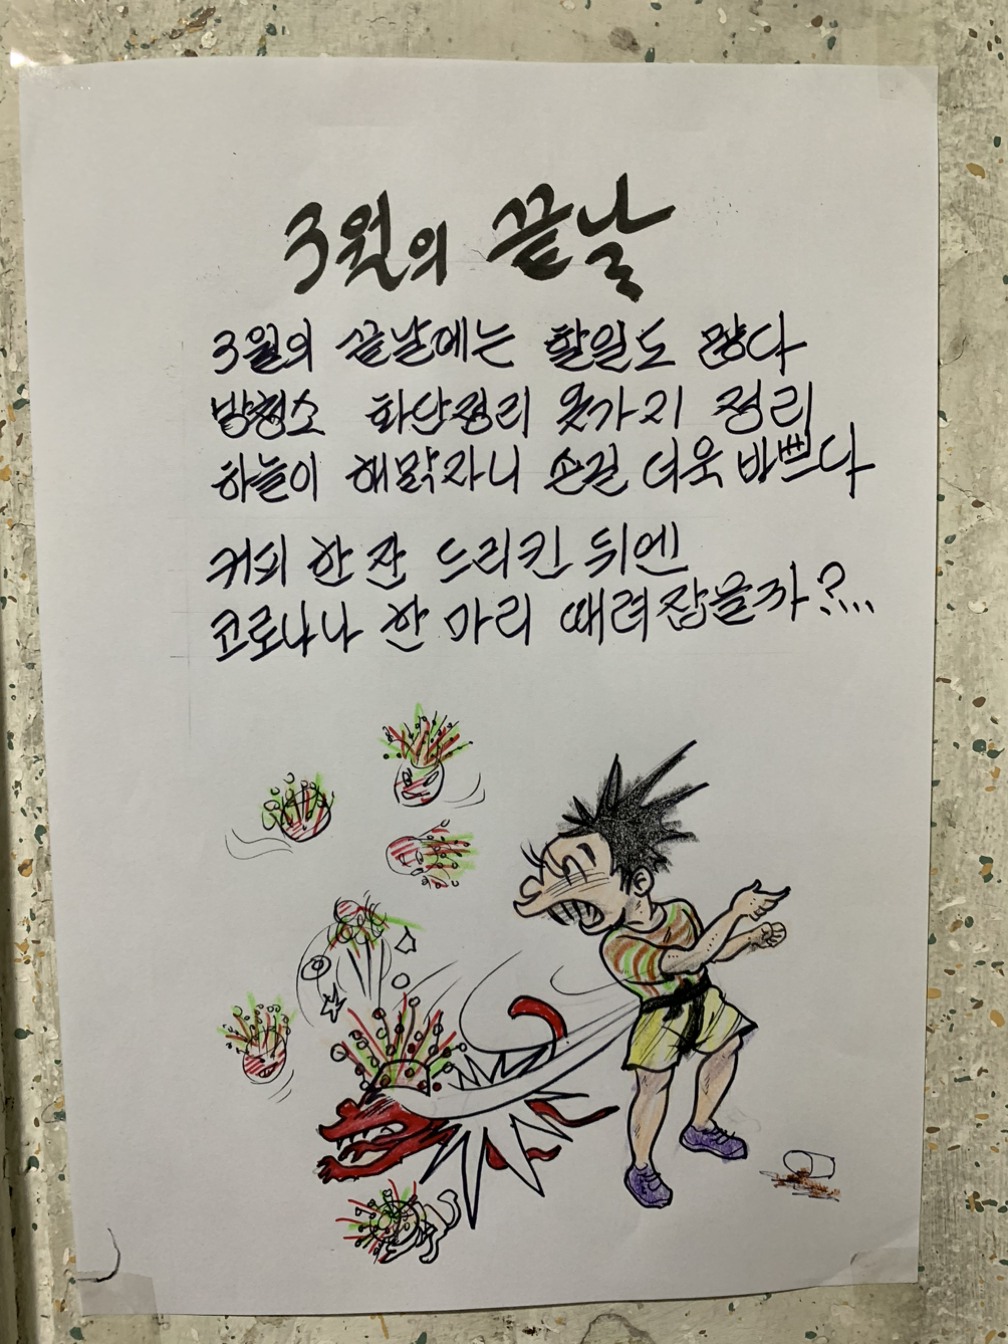 3월의 끝날
3월의 끝날에는 할일도 많다
방청소 화단정리 옷가지 정리
하늘이 해맑자니 손길 더욱 바쁘다
커피 한 잔 드리킨 뒤엔
코로나나 한 마리 때려잡을까?...